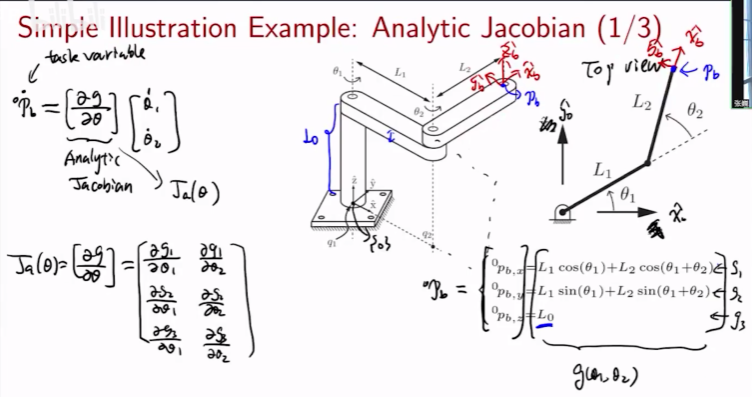 Simple Illustration Example: Analytic Jacobian (1/3)
task variable
⁰ṗ_b = [∂g/∂θ] [θ̇₁ θ̇₂]
Analytic
Jacobian
J_a(θ)
J_a(θ) = [∂g/∂θ] = [∂g₁/∂θ₁ ∂g₁/∂θ₂
∂g₂/∂θ₁ ∂g₂/∂θ₂
∂g₃/∂θ₁ ∂g₃/∂θ₂]
θ₁
L₁
L₂
θ₂
L₀
ẑ_b
ŷ_b
x̂_b
p_b
ẑ
ŷ
x̂
q₁
q₂
{0}
Top view
ŷ_b
x̂_b
p_b
ŷ₀
L₂
θ₂
L₁
θ₁
x̂₀
⁰p_b =
⁰p_{b,x} = L₁ cos(θ₁)+L₂ cos(θ₁+θ₂) ← g₁
⁰p_{b,y} = L₁ sin(θ₁)+L₂ sin(θ₁+θ₂) ← g₂
⁰p_{b,z} = L₀ ← g₃
g(θ₁,θ₂)